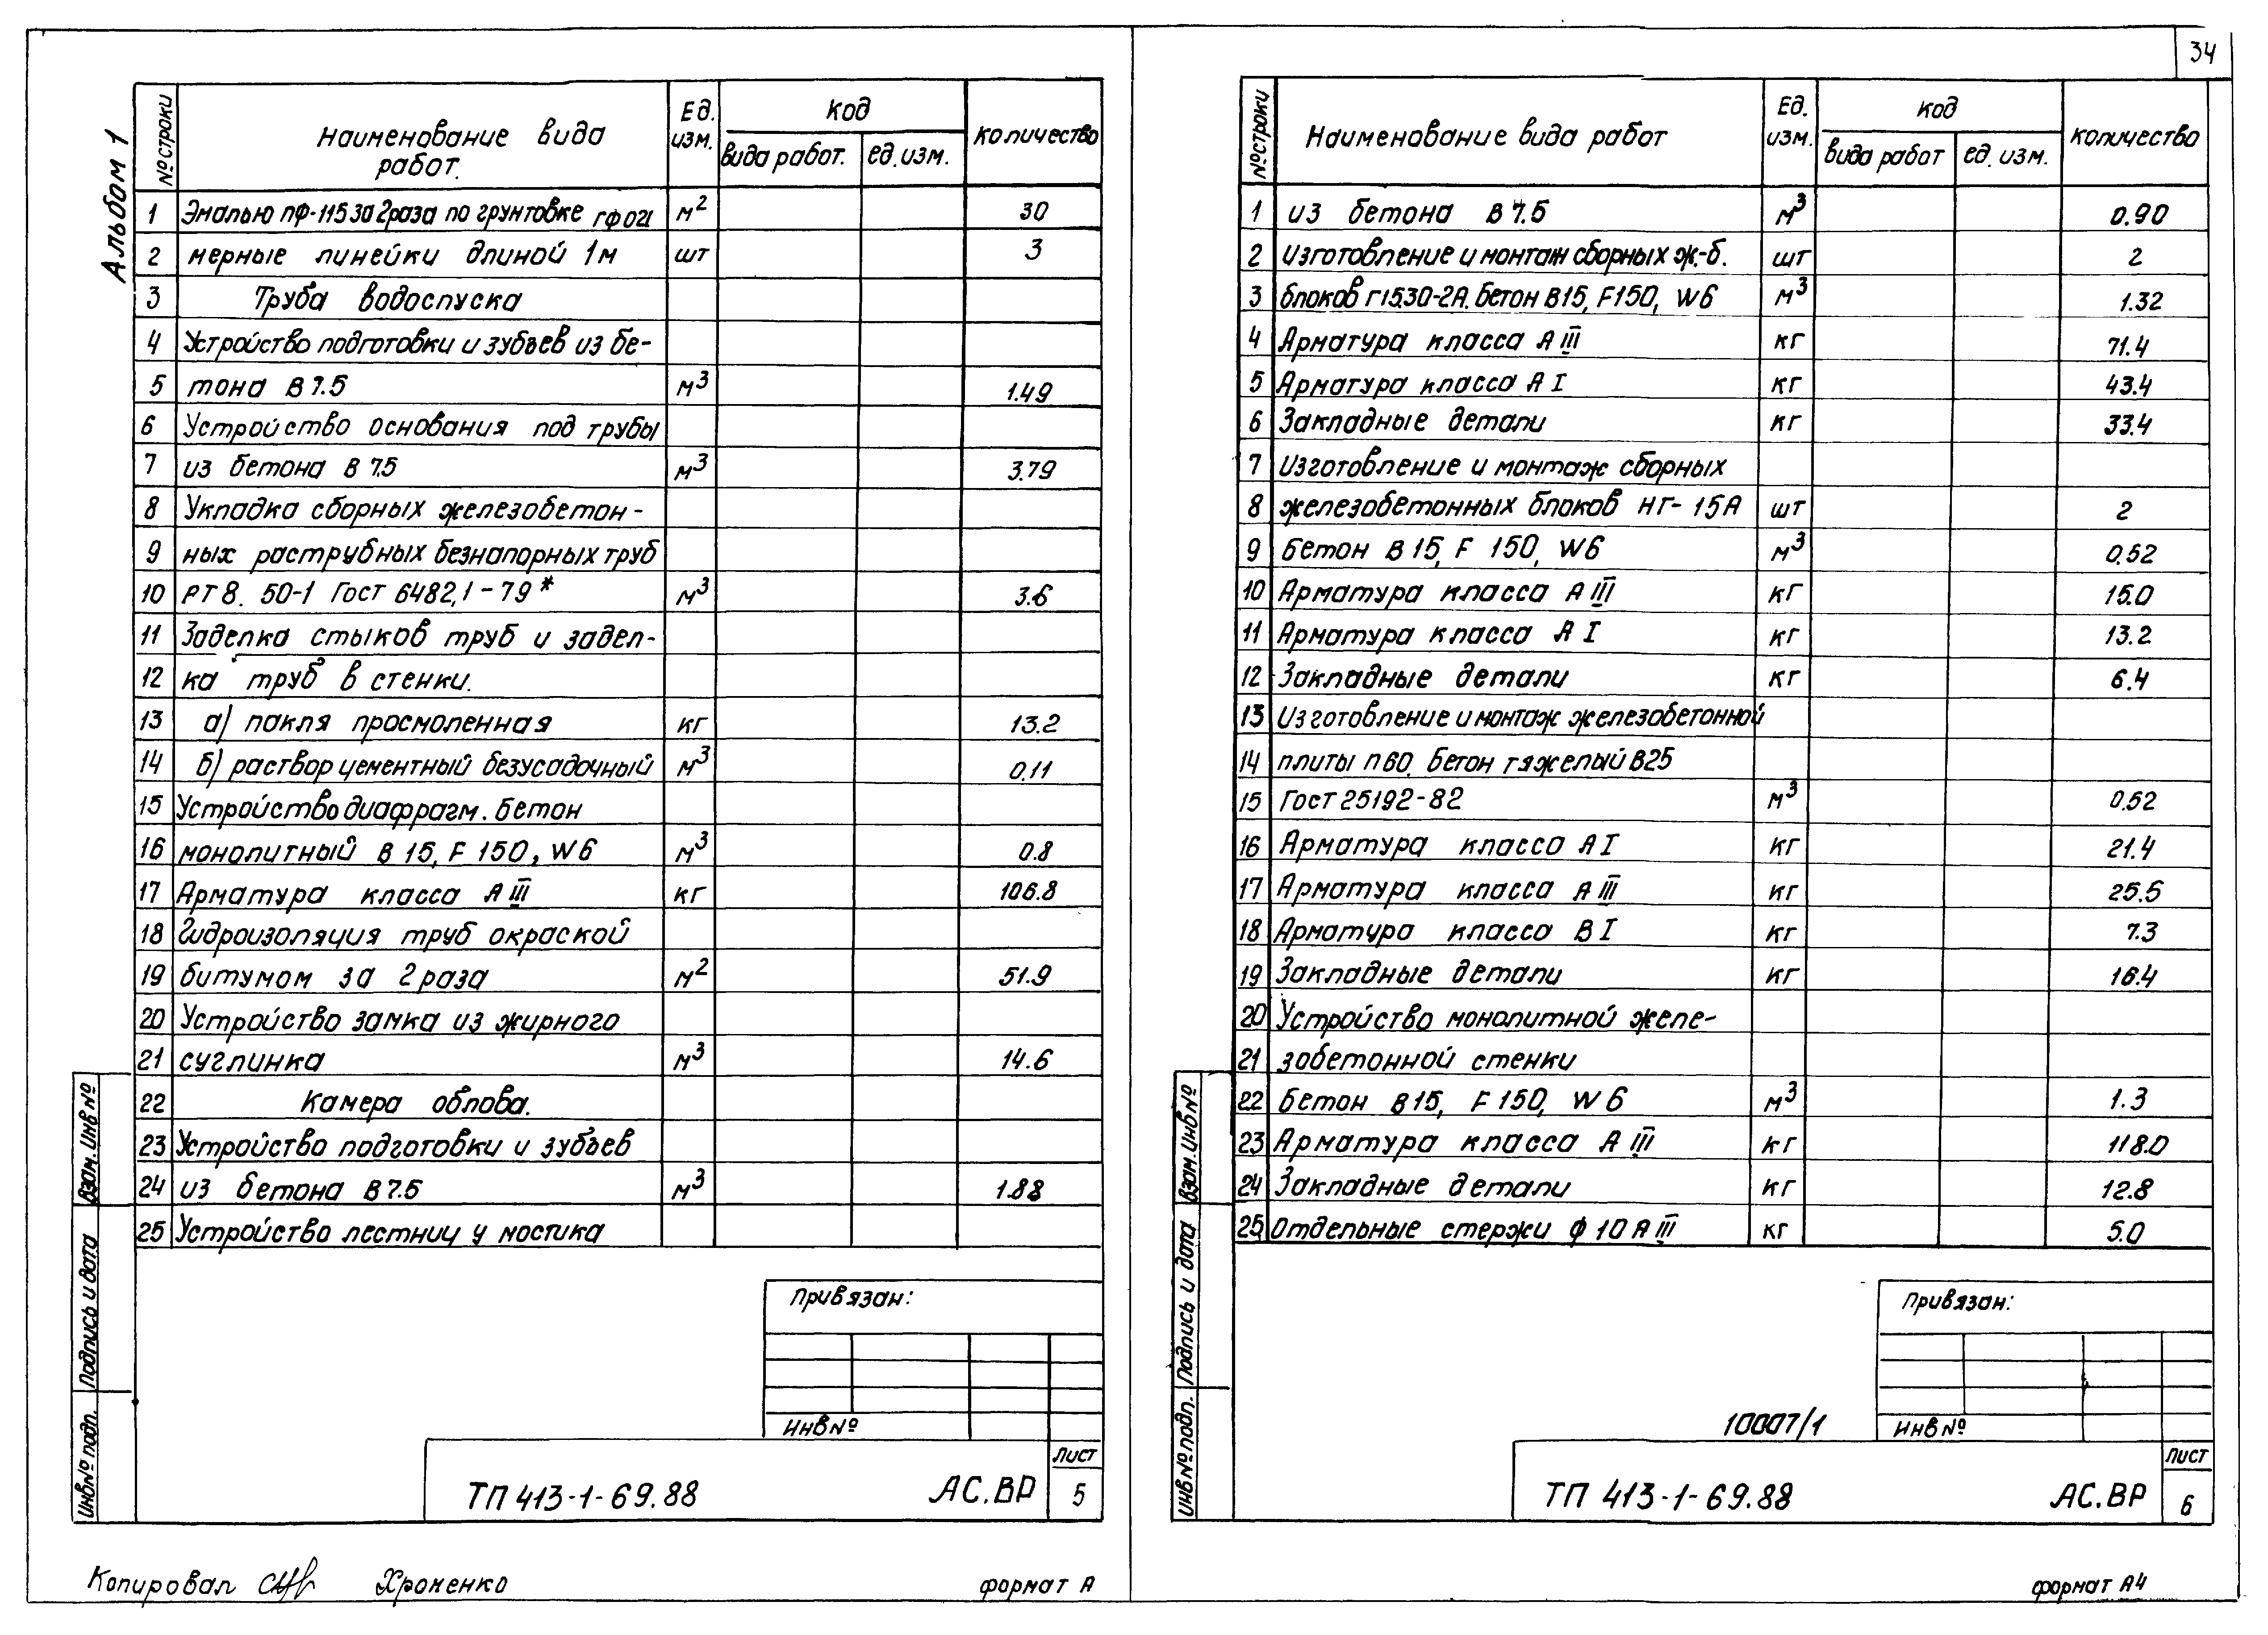 34
Альбом 1
№ строки Наименование вида работ. Ед. изм. Код вида работ. ед. изм. количество
1 Эмалью ПФ-115 за 2 раза по грунтовке ГФ 021 м² 30
2 мерные линейки длиной 1м шт 3
3 Труба водоспуска
4 Устройство подготовки и зубьев из бе-
5 тона В 7.5 м³ 1.49
6 Устройство основания под трубы
7 из бетона В 7.5 м³ 3.79
8 Укладка сборных железобетон-
9 ных раструбных безнапорных труб
10 РТ 8. 50-1 Гост 6482.1-79* м³ 3.6
11 Заделка стыков труб и задел-
12 ка труб в стенки.
13 а) пакля просмоленная кг 13.2
14 б) раствор цементный безусадочный м³ 0.11
15 Устройство диафрагм. бетон
16 монолитный В 15, F 150, W6 м³ 0.8
17 Арматура класса А III кг 106.8
18 Гидроизоляция труб окраской
19 битумом за 2 раза м² 51.9
20 Устройство замка из жирного
21 суглинка м³ 14.6
22 Камера облова.
23 Устройство подготовки и зубьев
24 из бетона В 7.5 м³ 1.88
25 Устройство лестниц у мостика
Привязан:
Инв №
ТП 413-1-69.88 АС.ВР Лист 5
Взам. Инв №
Подпись и дата
Инв № подп.
Копировал Хроменко формат А
№ строки Наименование вида работ Ед. изм. код вида работ ед. изм. количество
1 из бетона В 7.5 м³ 0.90
2 Изготовление и монтаж сборных ж.-б. шт 2
3 блоков Г15.30-2А. Бетон В15, F150, W6 м³ 1.32
4 Арматура класса А III кг 71.4
5 Арматура класса А I кг 43.4
6 Закладные детали кг 33.4
7 Изготовление и монтаж сборных
8 железобетонных блоков НГ-15А шт 2
9 Бетон В 15, F 150, W6 м³ 0.52
10 Арматура класса А III кг 15.0
11 Арматура класса А I кг 13.2
12 Закладные детали кг 6.4
13 Изготовление и монтаж железобетонной
14 плиты П60. Бетон тяжелый В25
15 Гост 25192-82 м³ 0.52
16 Арматура класса А I кг 21.4
17 Арматура класса А III кг 25.5
18 Арматура класса В I кг 7.3
19 Закладные детали кг 16.4
20 Устройство монолитной желе-
21 зобетонной стенки
22 Бетон В 15, F 150, W 6 м³ 1.3
23 Арматура класса А III кг 118.0
24 Закладные детали кг 12.8
25 Отдельные стержи ф 10 А III кг 5.0
Привязан:
10007/1 Инв №
ТП 413-1-69.88 АС.ВР Лист 6
Взам. Инв №
Подпись и дата
Инв № подп.
формат А4